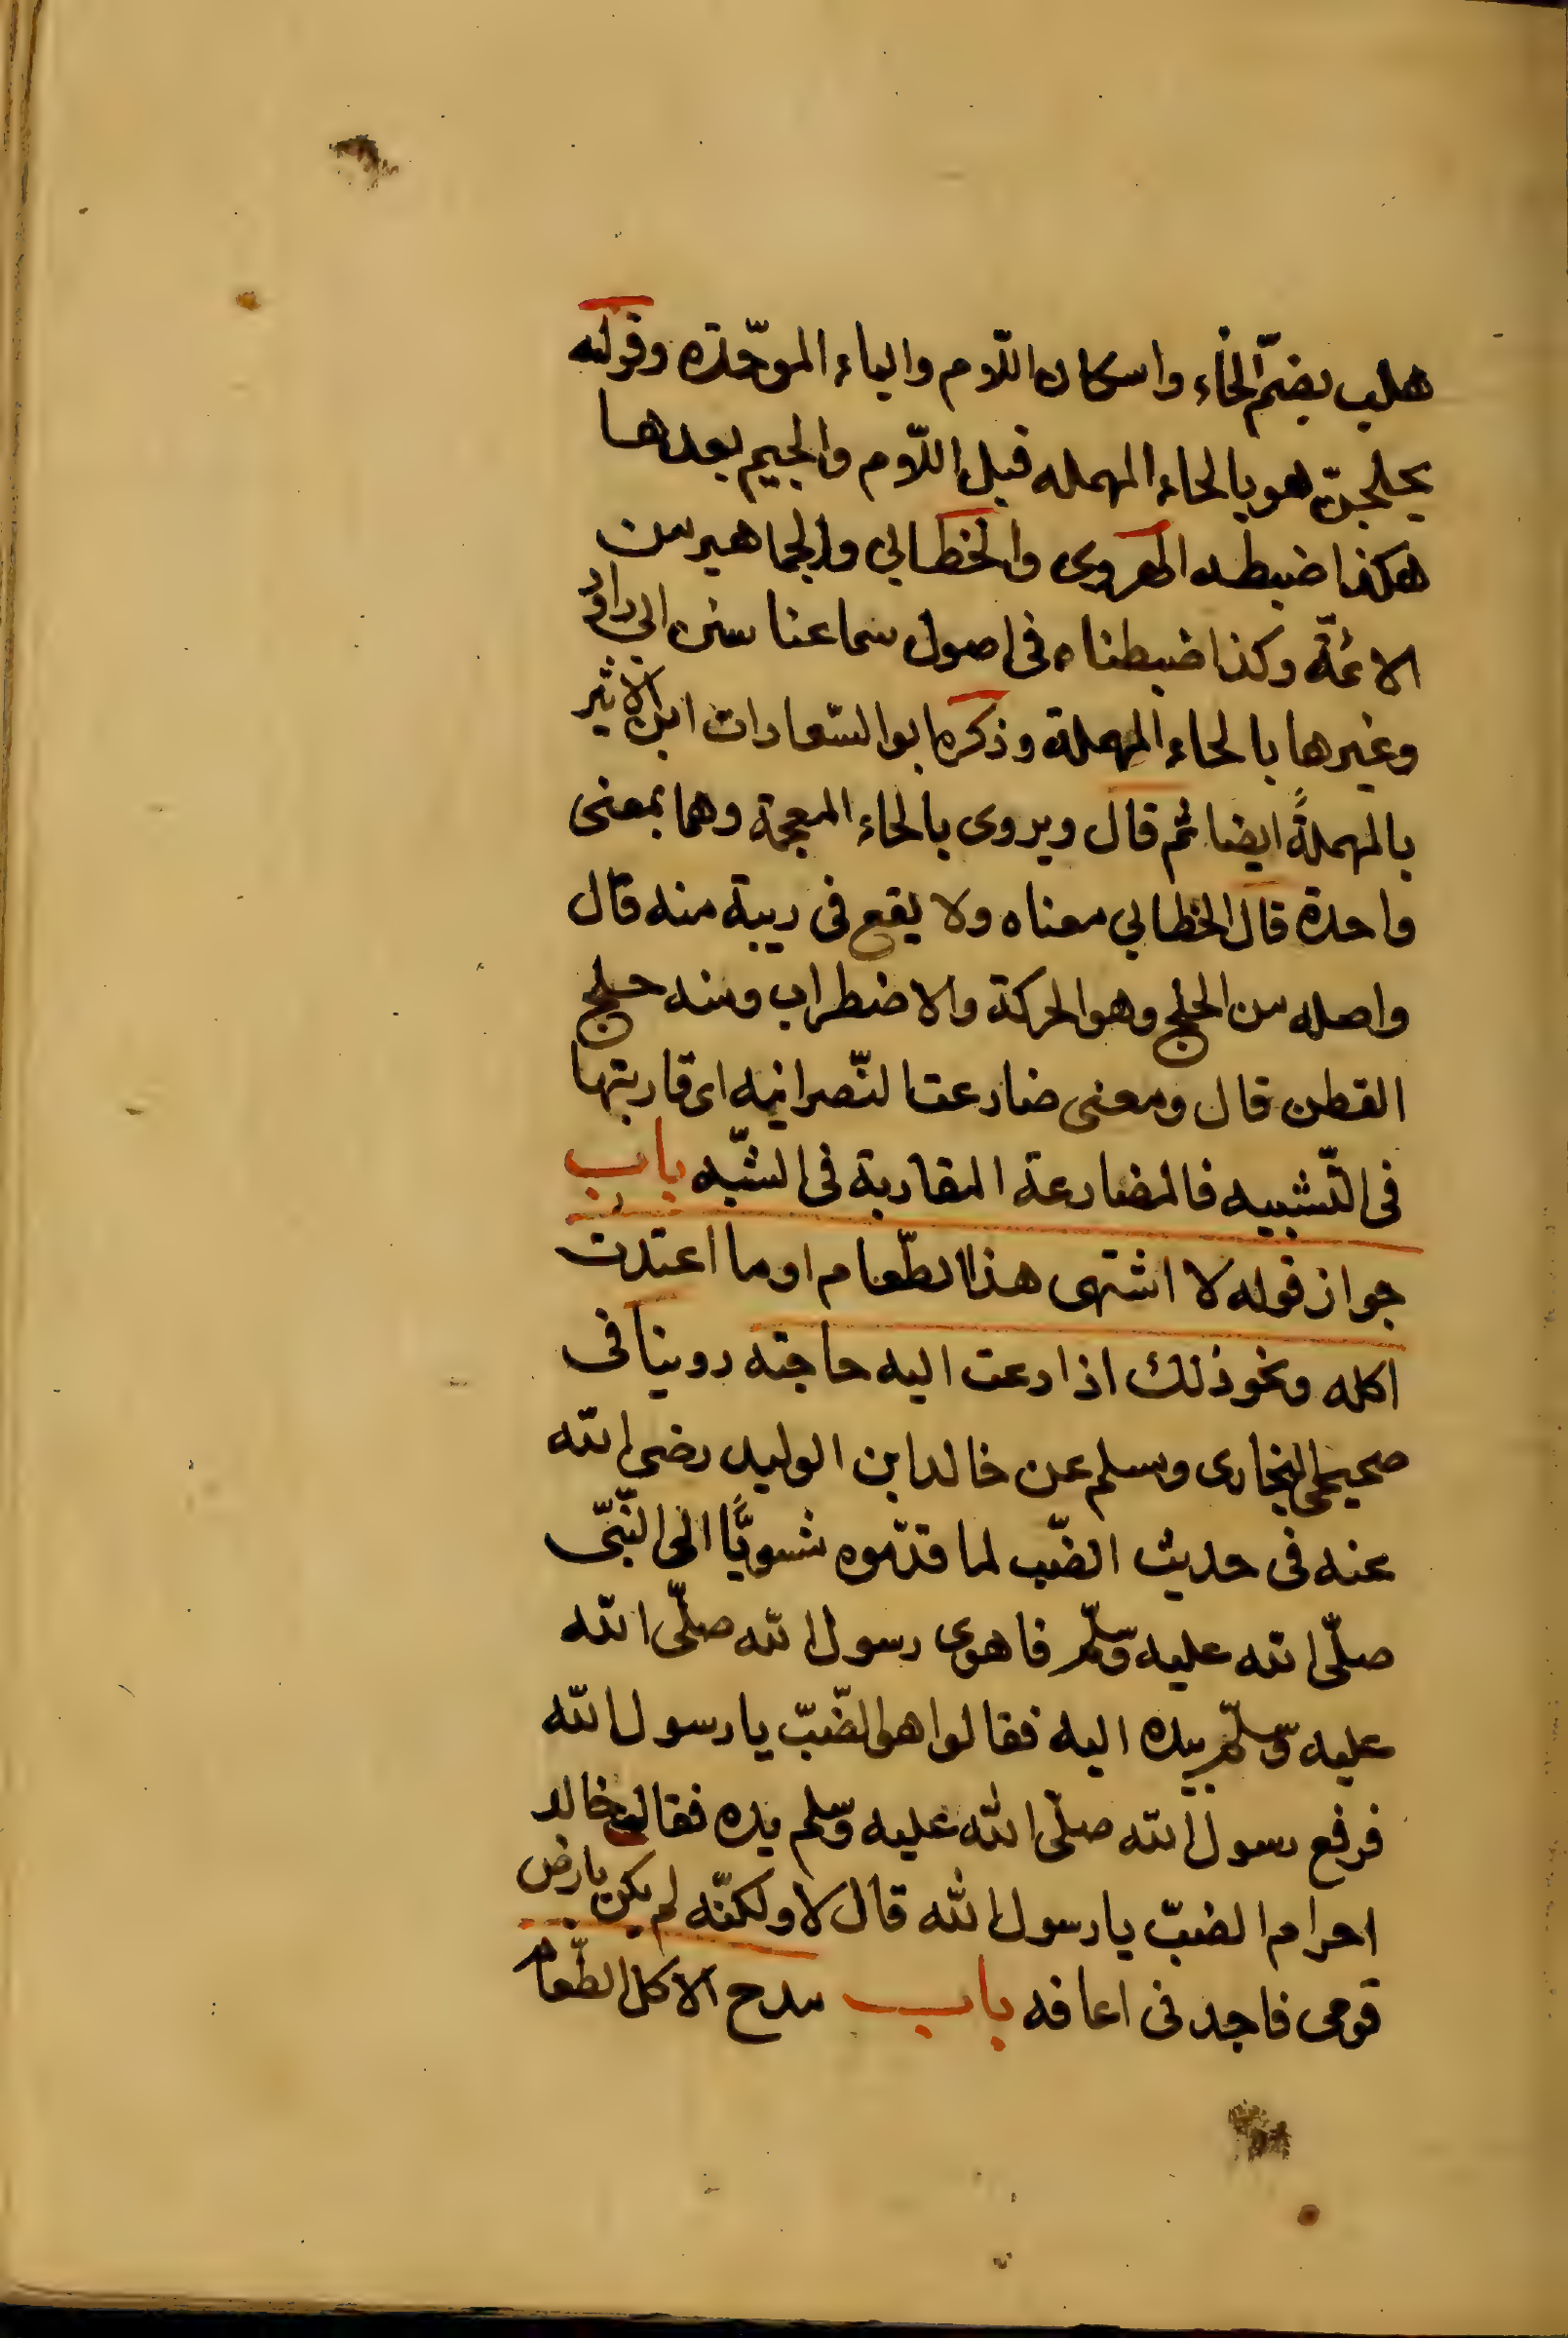 هلب بضمّ الخاء واسكان اللّام والباء الموحّدة وقوله
يحلجنّ هو بالحاء المهمله قبل اللّام والجيم بعدها
هكذا ضبطه الهروى والخطابي والجماهير من
الائمّة وكذا ضبطناه فى اصول سماعنا سنن ابي داود
وغيرها بالحاء المهملة وذكره ابو السّعادات ابن الاثير
بالمهملة ايضًا ثم قال ويروى بالخاء المعجمة وهما بمعنى
واحدة قال الخطابي معناه ولا يقع فى ريبة منه قال
واصله من الحلج وهو الحركة والاضطراب ومنه حلج
القطن قال ومعنى ضارعت النّصرانيه اى قاربتها
فى التّشبيه فالمضارعة المقاربة فى الشّبه باب
جواز قوله لا اشتهى هذا الطّعام او ما اعتدت
اكله ونحو ذلك اذا دعت اليه حاجته روينا فى
صحيحى البخارى ومسلم عن خالد ابن الوليد رضي الله
عنه فى حديث الضّب لما قدّموه مشويًّا الى النّبّى
صلّى الله عليه وسلّم فاهوى رسول الله صلّى الله
عليه وسلّم بيده اليه فقالوا هو الضّبّ يا رسول الله
فرفع رسول الله صلّى الله عليه وسلم يده فقال خالد
احرام الضبّ يا رسول الله قال لا ولكنّه لم يكن بارض
قومى فاجدنى اعافه باب مدح الاكل الطّعام